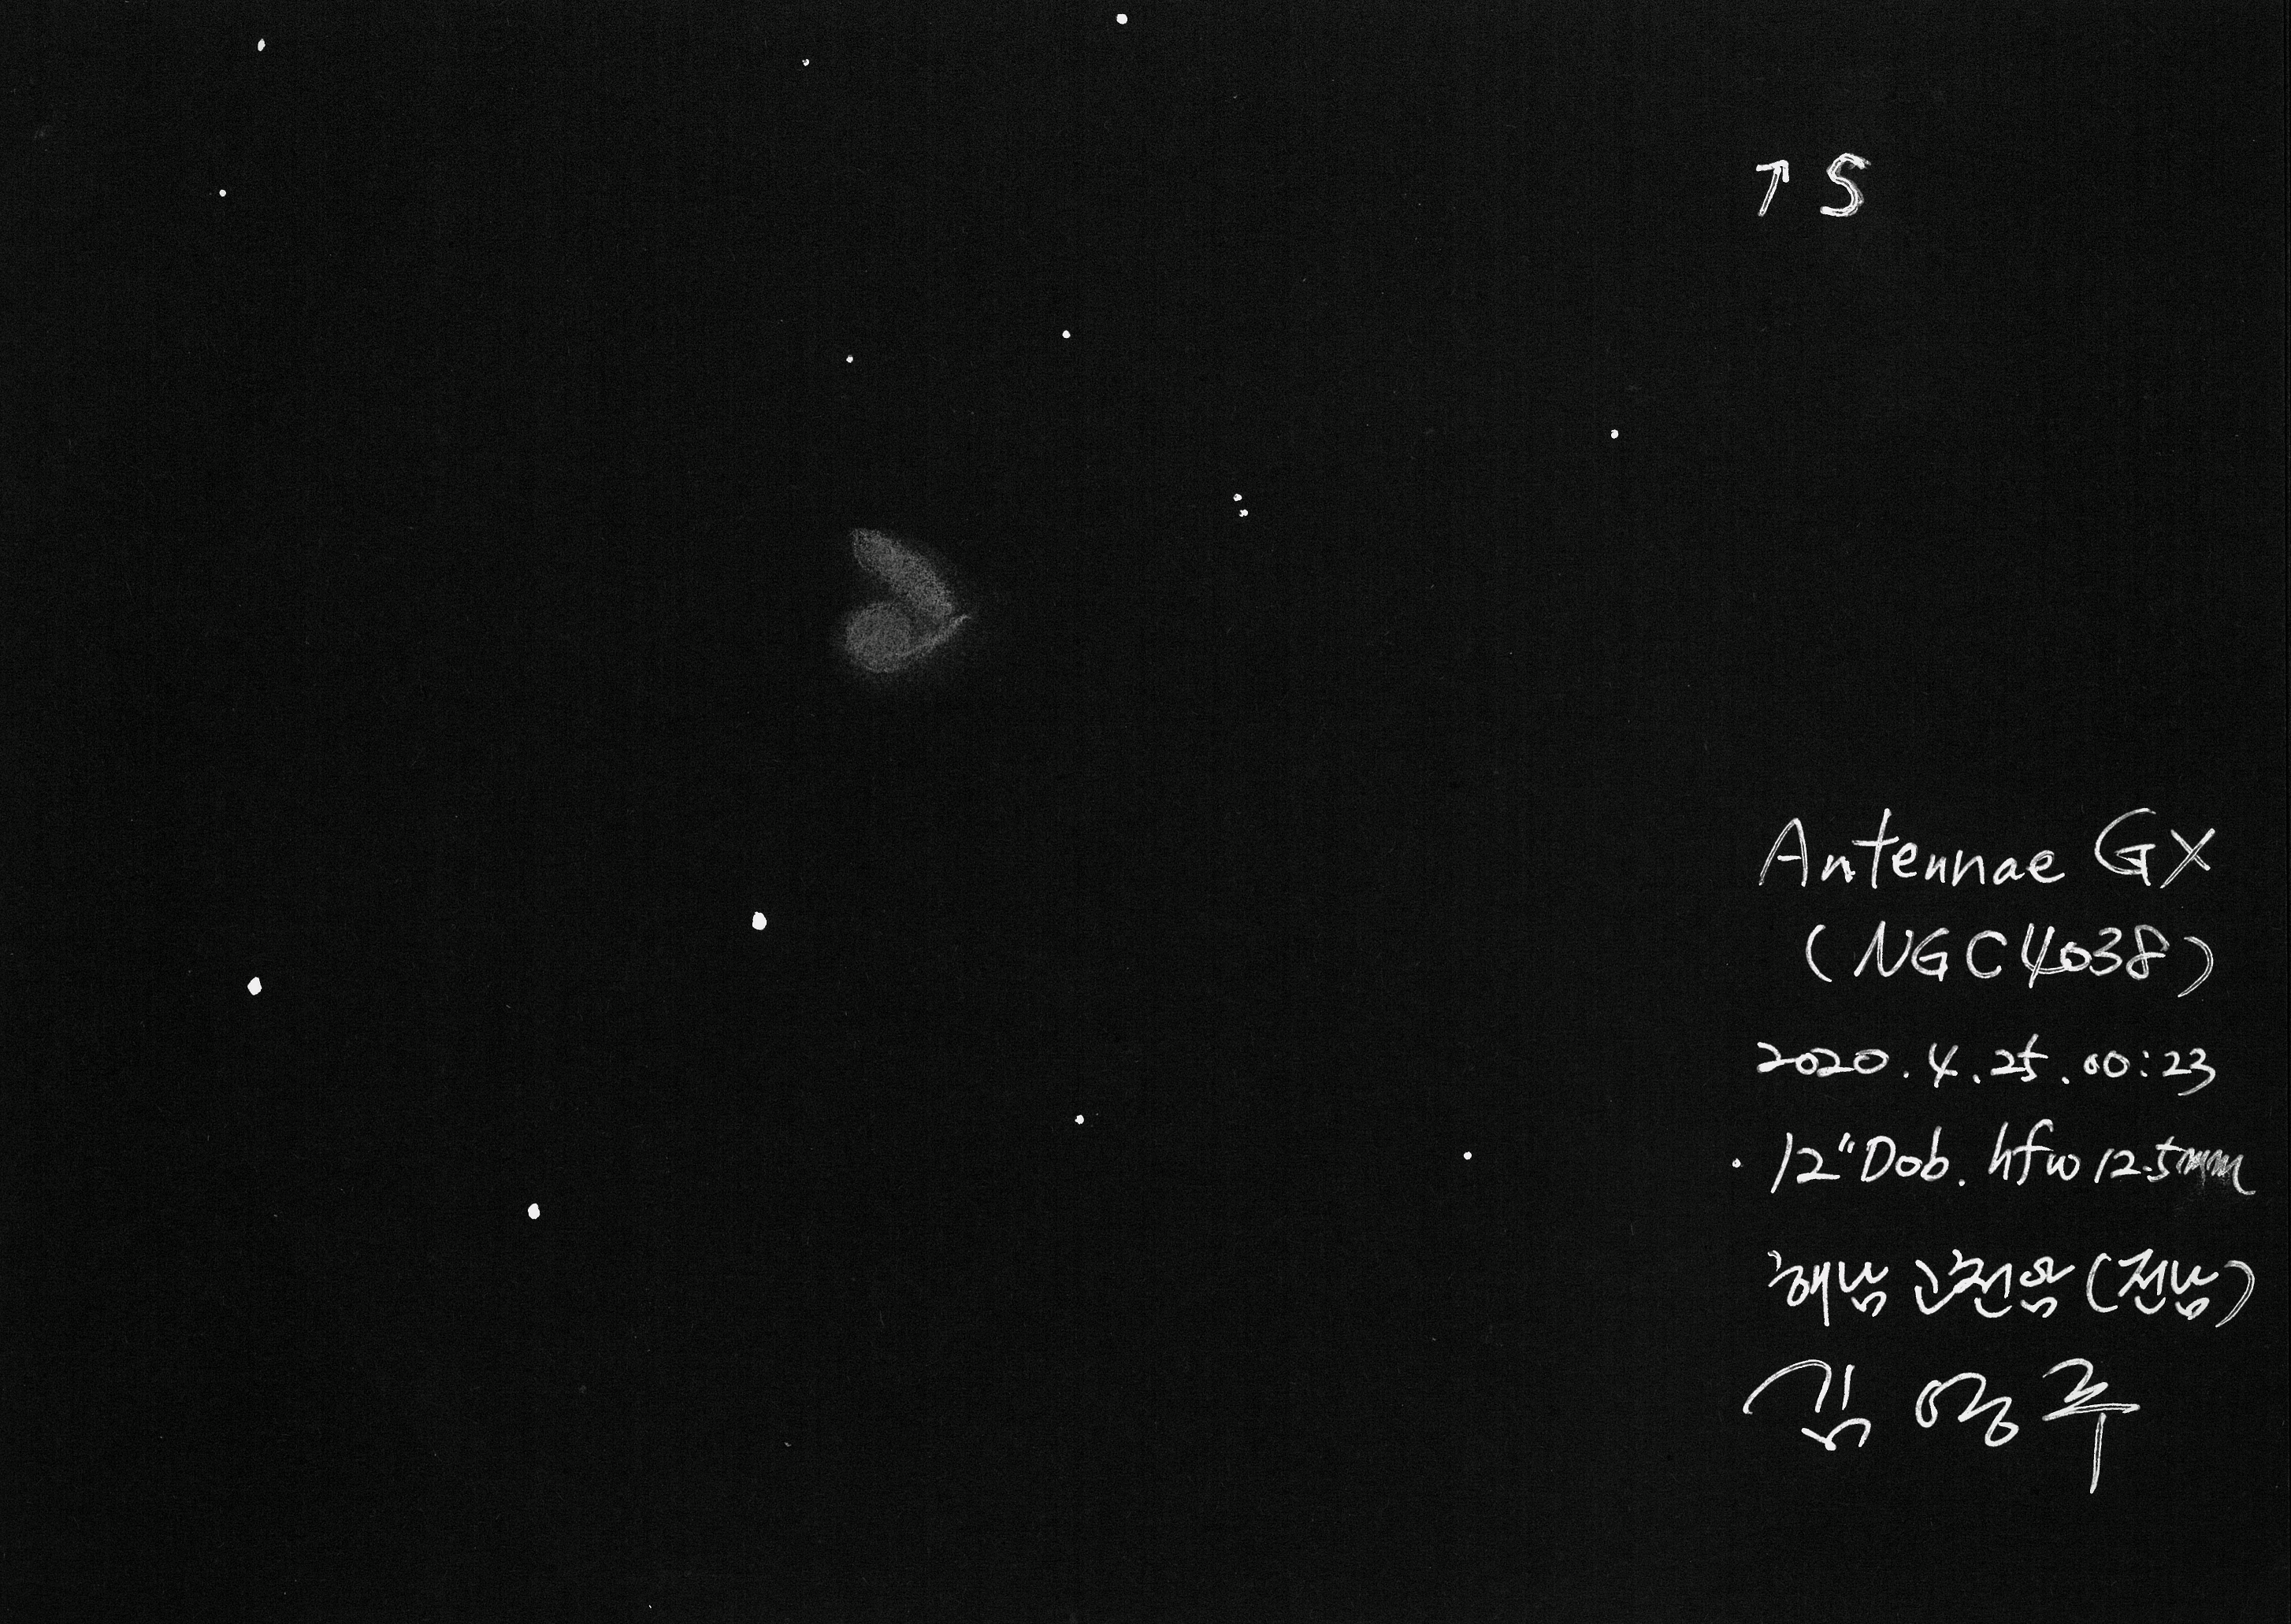 ↑ S
Antennae GX
(NGC4038)
2020.4.25.00:23
12"Dob. hfw 12.5mm
해남 고천암 (전남)
김영주